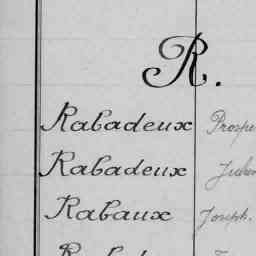 R.
Rabadeux Prospe
Rabadeux Julien
Rabaux Joseph.